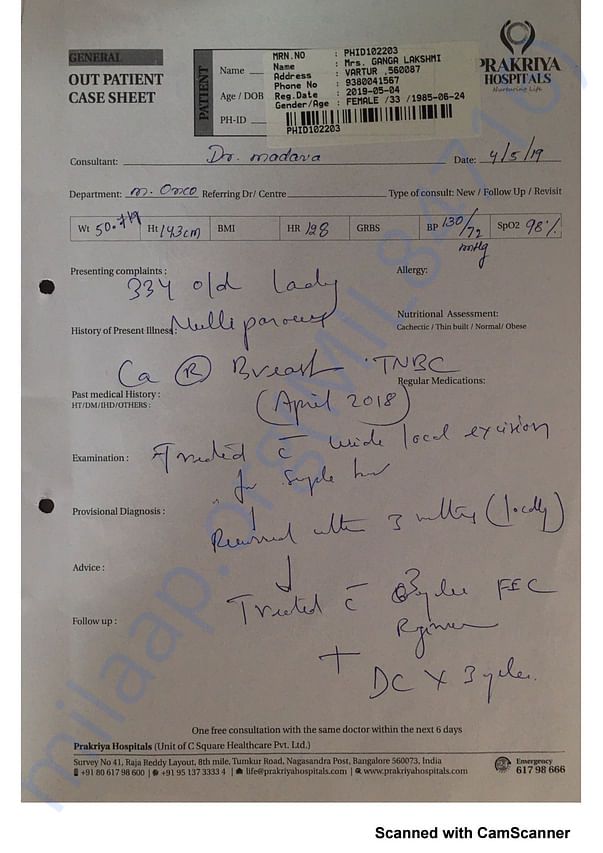 GENERAL
OUT PATIENT
CASE SHEET
PATIENT
Name
Age / DOB
PH-ID
MRN.NO : PHID102203
Name : Mrs. GANGA LAKSHMI
Address : VARTUR ,560087
Phone No : 9380041567
Reg.Date : 2019-05-04
Gender/Age : FEMALE /33 /1985-06-24
PHID102203
PRAKRIYA
HOSPITALS
Nurturing Life
Consultant: Dr. madava Date: 4/5/19
Department: m. Onco Referring Dr/ Centre Type of consult: New / Follow Up / Revisit
Wt 50.719 Ht 143cm BMI HR 128 GRBS BP 130/72 mmHg SpO2 98%
Presenting complaints : Allergy:
33Y old lady
Nutritional Assessment:
Cachectic / Thin built / Normal/ Obese
History of Present Illness: Multiparous
Ca R Breast TNBC
Regular Medications:
Past medical History : (April 2018)
HT/DM/IHD/OTHERS :
Examination : Treated c wide local excision
for
Provisional Diagnosis :
Recurred after 3 months (locally)
Advice :
Treated c 3 cycles FEC
Follow up : Regimen
+ DC X 3 cycles.
One free consultation with the same doctor within the next 6 days
Prakriya Hospitals (Unit of C Square Healthcare Pvt. Ltd.)
Survey No 41, Raja Reddy Layout, 8th mile, Tumkur Road, Nagasandra Post, Bangalore 560073, India
+91 80 617 98 600 | +91 95 137 3333 4 | life@prakriyahospitals.com | www.prakriyahospitals.com
Emergency
617 98 666
Scanned with CamScanner